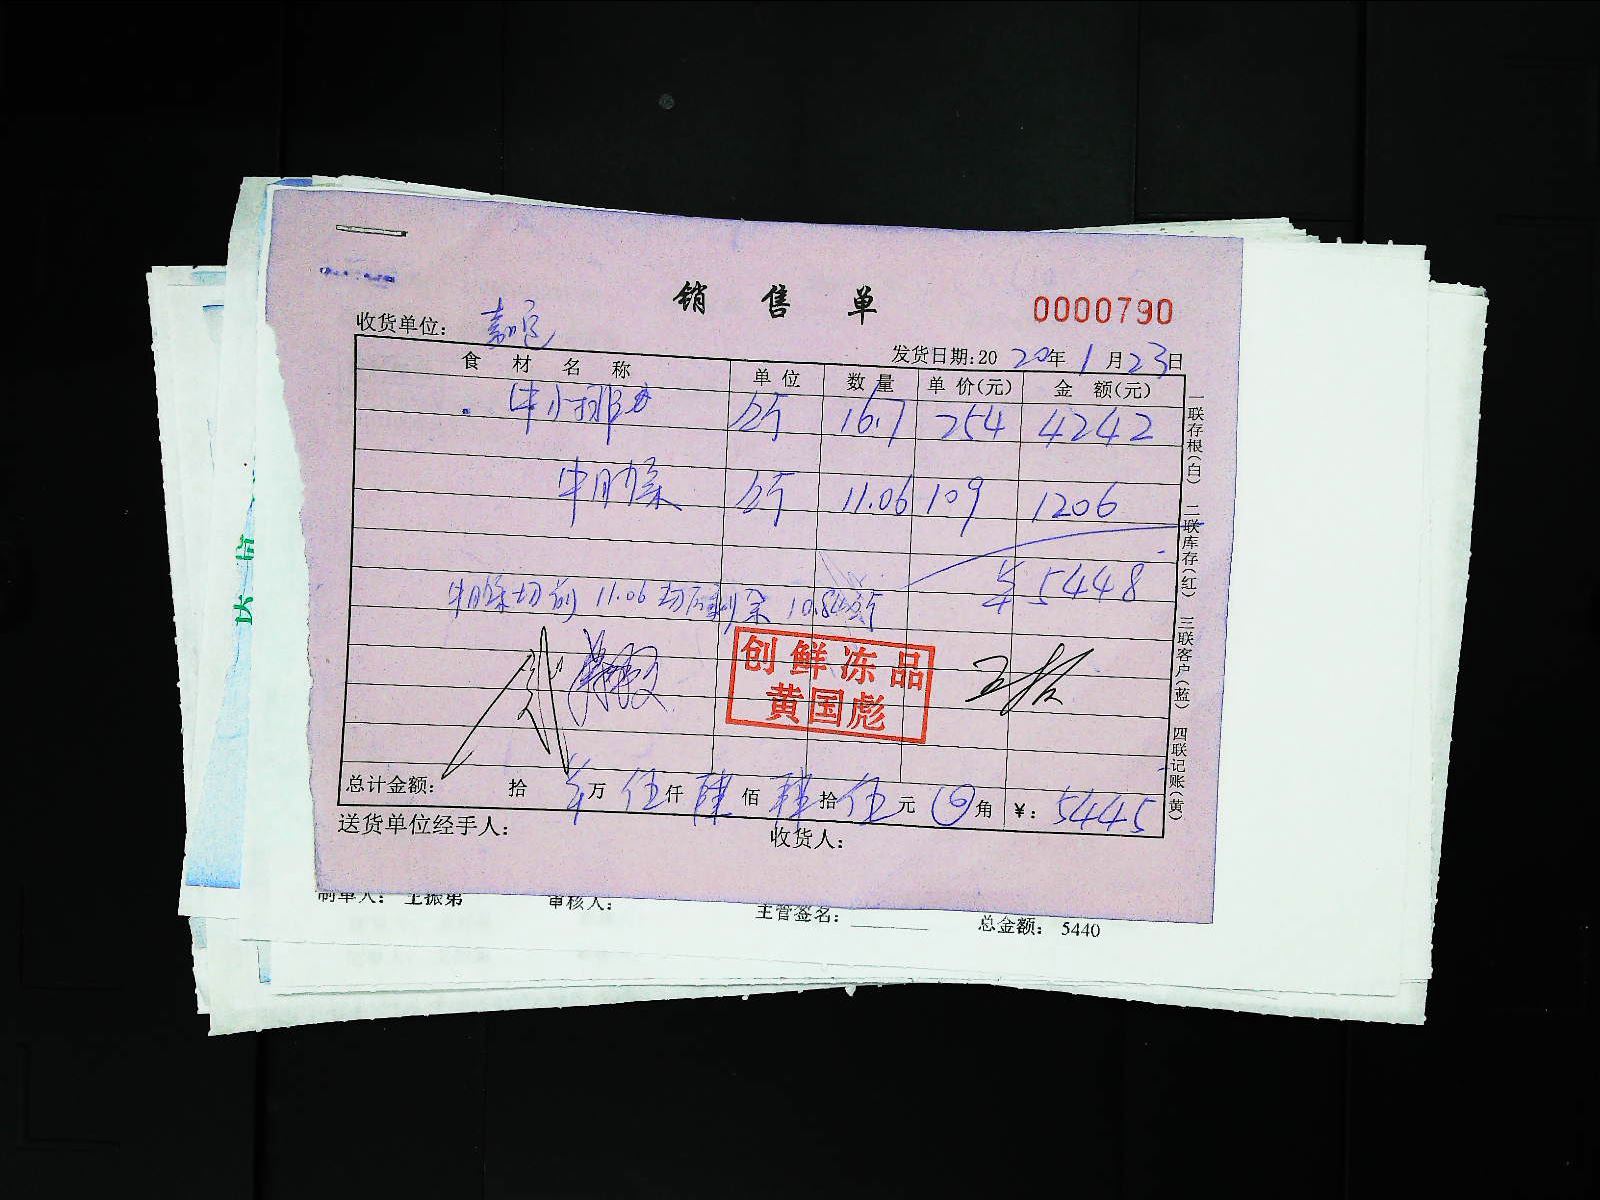 销售单
0000790
收货单位：嘉宾
发货日期：2020年1月23日
食材名称 单位 数量 单价(元) 金额(元)
牛小排 斤 16.7 254 4242
牛肋条 斤 11.06 109 1206
¥5448
牛肋条切前 11.06 切后剩余
创鲜冻品
黄国彪
王振
总计金额： 拾 万 伍仟 佰 拾 伍元 角 ¥：5445
送货单位经手人：
收货人：
一联存根(白) 二联库存(红) 三联客户(蓝) 四联记账(黄)
制单人： 王振弟 审核人： 主管签名： 总金额： 5440